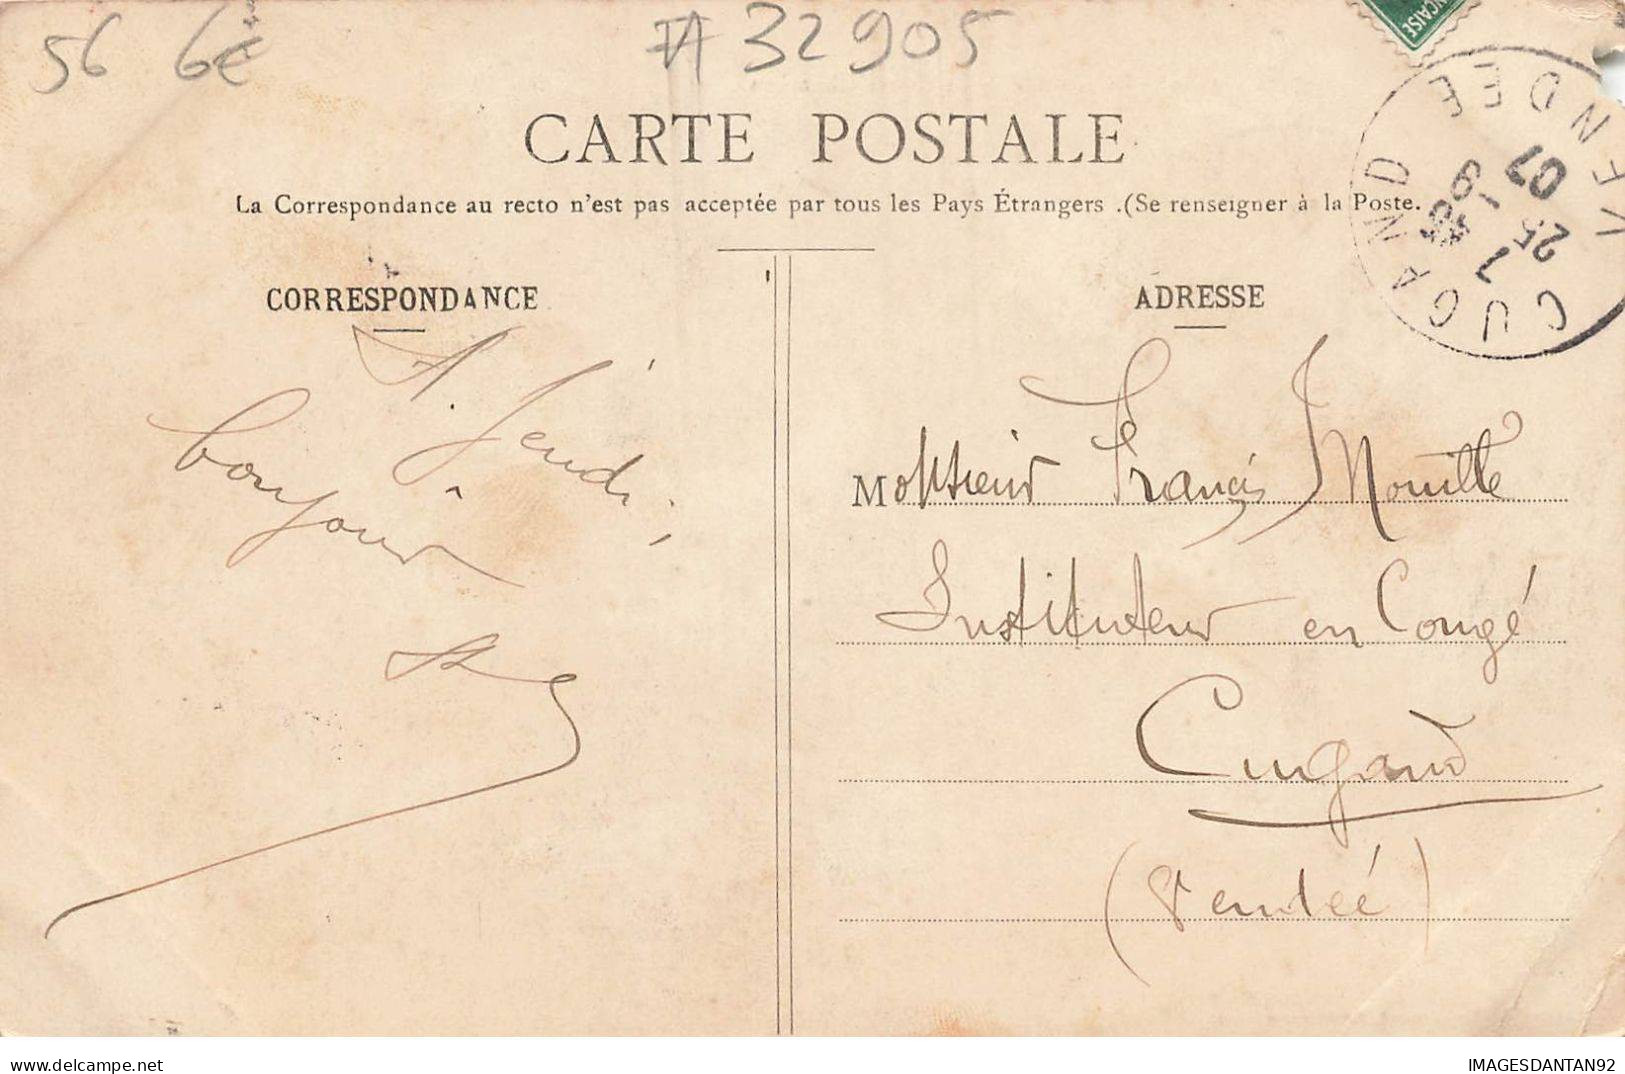 56 6€
A 32905
CARTE POSTALE
La Correspondance au recto n'est pas acceptée par tous les Pays Étrangers .(Se renseigner à la Poste.
CORRESPONDANCE
ADRESSE
ÇAISE
CUGAND VENDÉE
7 45
25 - 9
07
A Jeudi
bonjour
Monsieur Francis Mouillé
Instituteur en Congé
Cugand
(Vendée)
delcampe.net
IMAGESDANTAN92